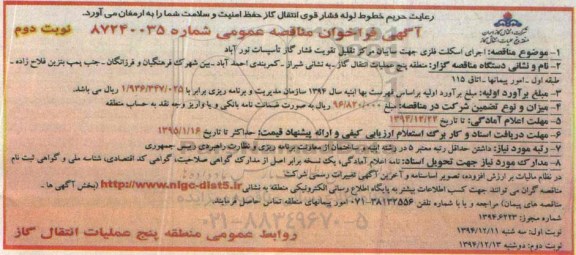 رعایت حریم خطوط لوله فشار قوی انتقال گاز حفظ امنیت و سلامت شما را به ارمغان می آورد.
آگهی فراخوان مناقصه عمومی شماره ۸۷۲۴۰۰۳۵
نوبت دوم
۱- موضوع مناقصه: اجرای اسکلت فلزی جهت سایبان مرکز تقلیل تقویت فشار گاز تأسیسات نور آباد
۲- نام و نشانی دستگاه مناقصه گزار: منطقه پنج عملیات انتقال گاز - به نشانی شیراز - کمربندی احمد آباد - بین شهرک فرهنگیان و فرزانگان - جنب پمپ بنزین فلاح زاده -
طبقه اول - امور پیمانها - اتاق ۱۱۵
۳- مبلغ برآورد اولیه: مبلغ برآورد اولیه براساس فهرست بها ابنیه سال ۱۳۹۴ سازمان مدیریت و برنامه ریزی برابر با ۱/۹۳۶/۳۴۷/۰۲۵ ریال می باشد.
۴- میزان و نوع تضمین شرکت در مناقصه: مبلغ ۹۶/۸۲۰/۰۰۰ ریال به صورت ضمانت نامه بانکی و یا واریز وجه نقد به حساب منطقه
۵- مهلت اعلام آمادگی: تا تاریخ ۱۳۹۴/۱۲/۲۴
۶- مهلت دریافت اسناد و کار برگ استعلام ارزیابی کیفی و ارائه پیشنهاد قیمت: حداکثر تا تاریخ ۱۳۹۵/۱/۱۶
۷- رتبه مورد نیاز: داشتن حداقل رتبه معتبر ۵ در رشته ابنیه و ساختمان از معاونت برنامه ریزی و نظارت راهبردی رییس جمهوری
۸- مدارک مورد نیاز جهت تحویل اسناد: نامه اعلام آمادگی، یک نسخه برابر اصل از مدارک گواهی صلاحیت، گواهی کد اقتصادی، شناسه ملی و گواهی ثبت نام
در نظام مالیات بر ارزش افزوده، تصویر اساسنامه و آخرین آگهی تغییرات رسمی شرکت
مناقصه گران می توانند جهت کسب اطلاعات بیشتر به پایگاه اطلاع رسانی الکترونیکی منطقه به نشانی http://www.nigc-dist5.ir (بخش آگهی ها -
مناقصه های پیمان) مراجعه و یا با شماره تلفن ۳۸۱۳۲۵۵۶-۰۷۱ امور پیمانهای منطقه تماس حاصل فرمایند.
شماره مجوز: ۱۳۹۴.۶۲۲۳
نوبت اول: سه شنبه ۱۳۹۴/۱۲/۱۱
نوبت دوم: دوشنبه ۱۳۹۴/۱۲/۱۳
روابط عمومی منطقه پنج عملیات انتقال گاز
۰۲۱-۸۸۳۴۹۶۷۰-۵